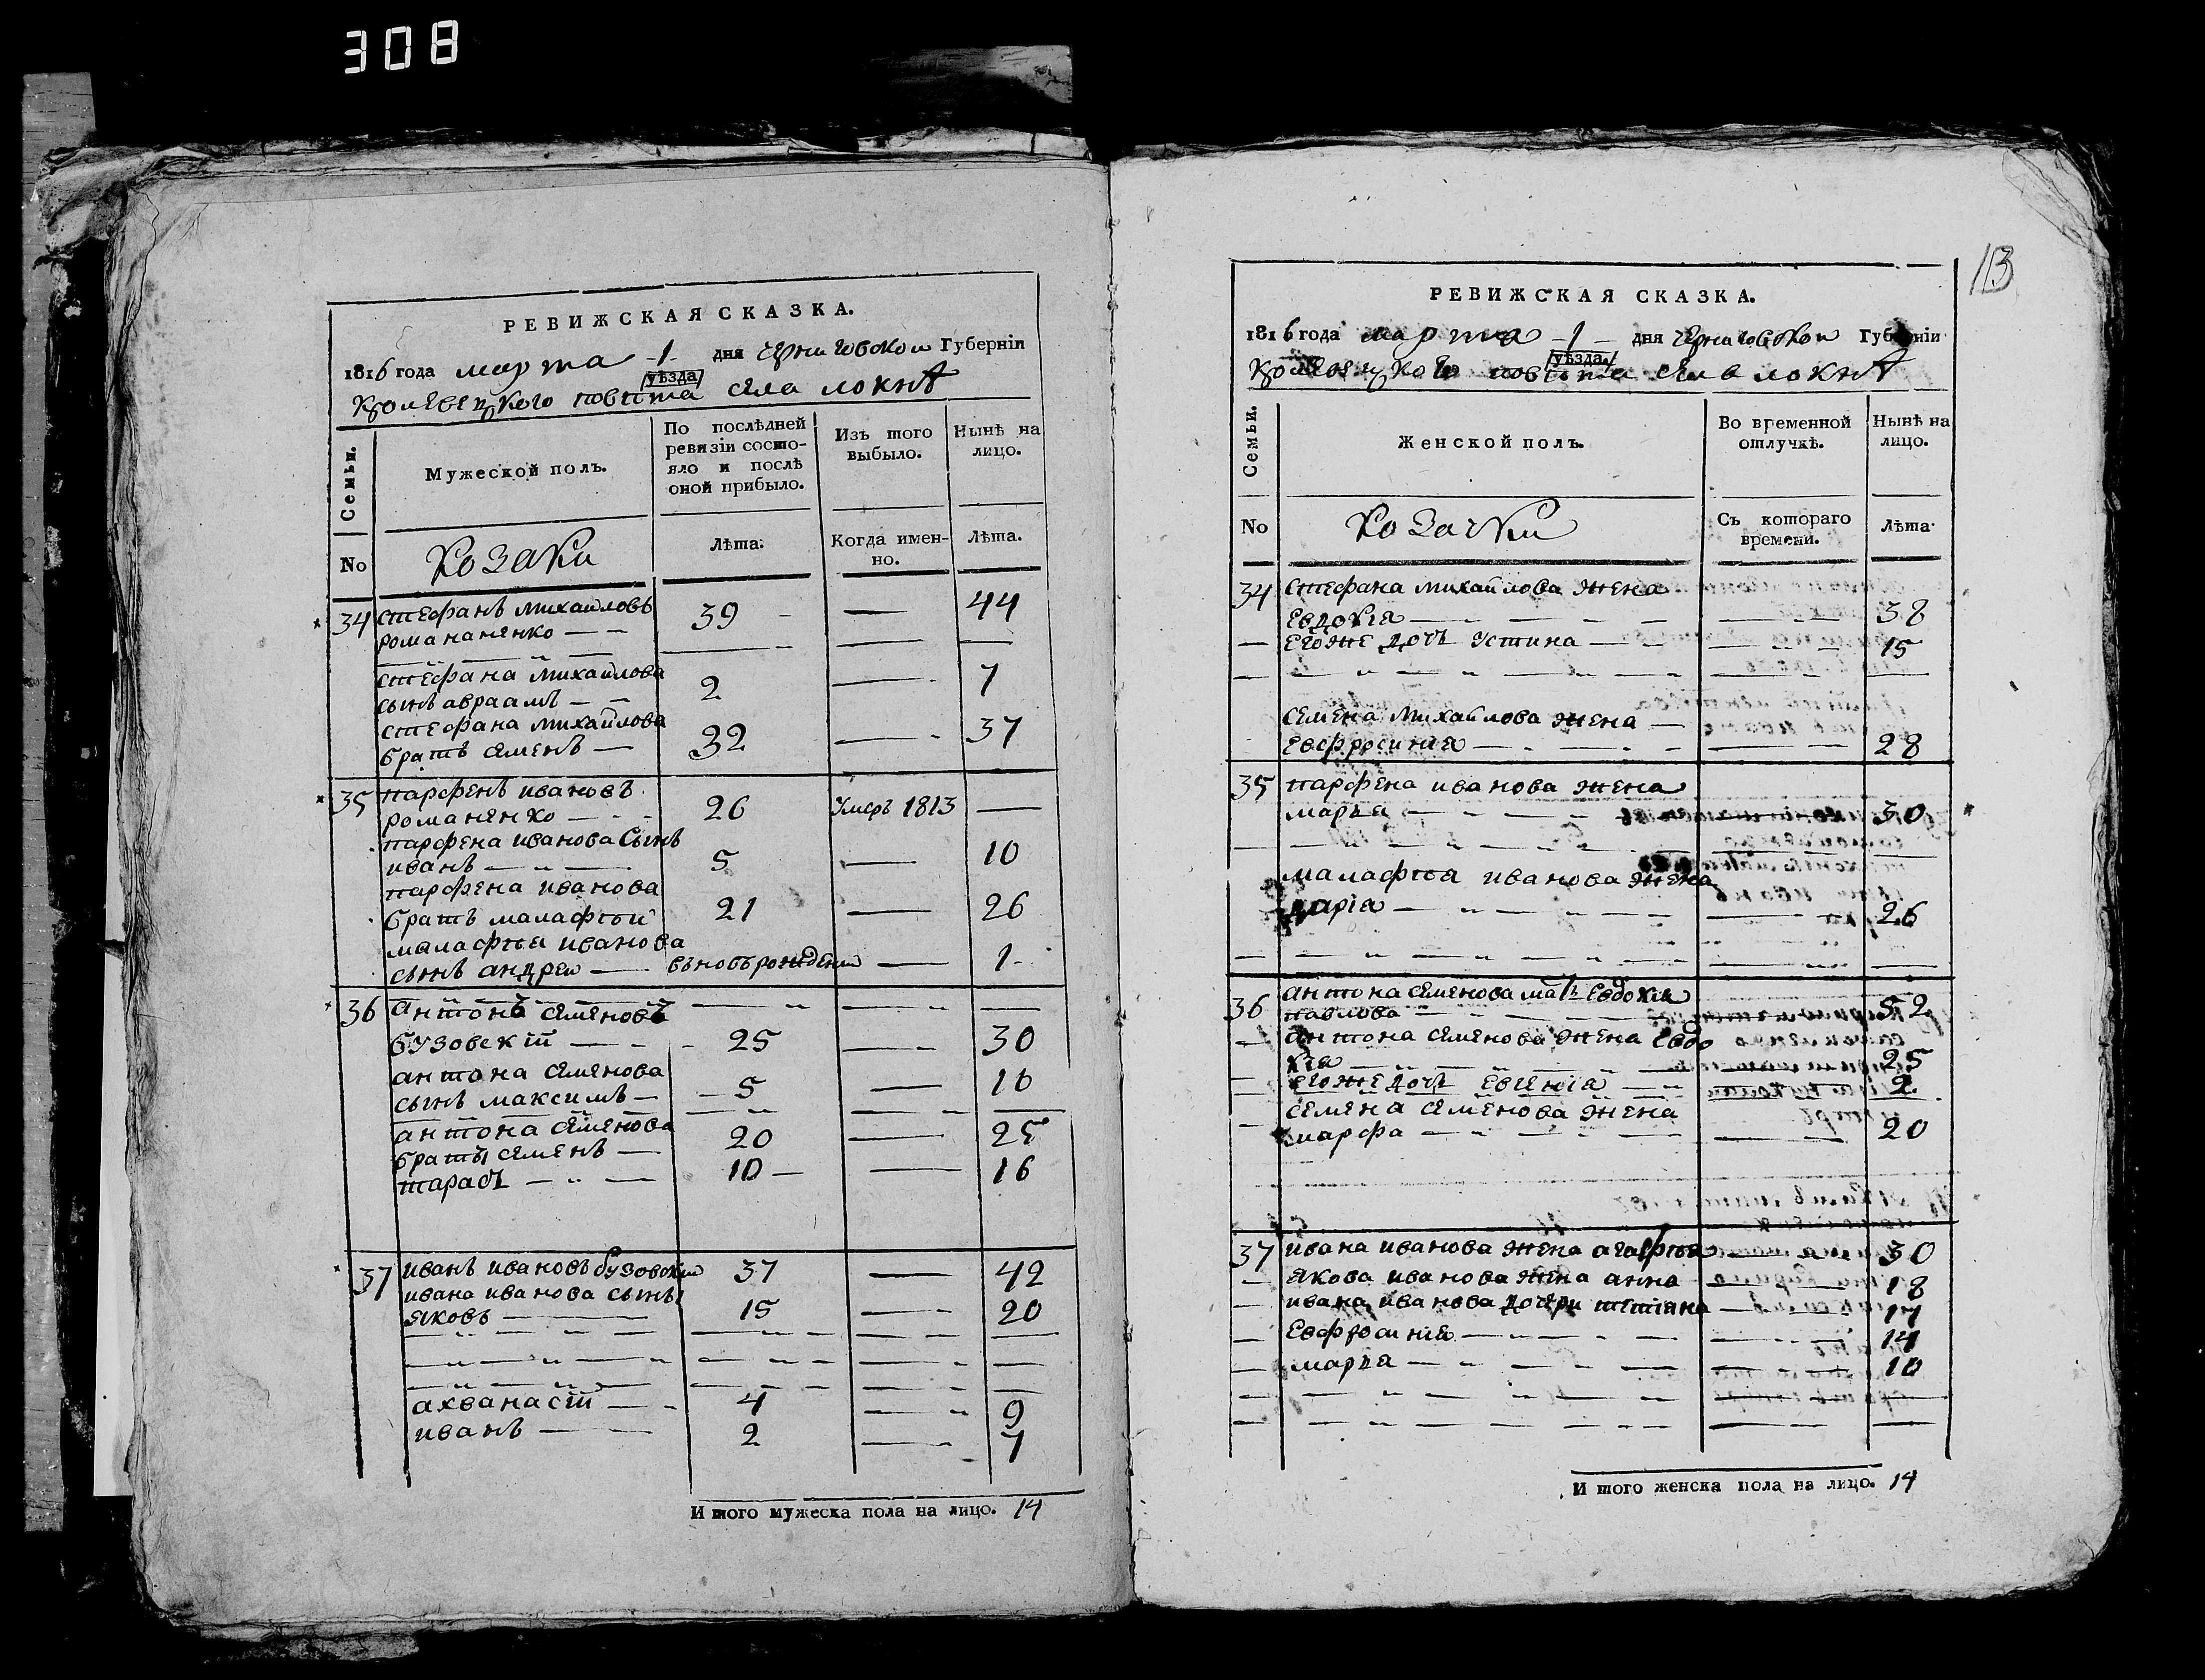 308
РЕВИЖСКАЯ СКАЗКА.
1816 года марта -1- дня черниговской Губерніи
уѣзда
кролевецкого повѣта села локнѣ
Семьи.
Мужеской полъ.
По послѣдней ревизіи состо-
яло и послѣ
оной прибыло.
Изъ того
выбыло.
Нынѣ на
лицо.
No
козаки
Лѣта.
Когда имен-
но.
Лѣта.
34 стефанъ михайловъ 39 — 44
романенко — —
стефана михайлова
сынъ авраамъ — — 2 — 7
стефана михайлова
братъ семенъ — 32 — 37
35 парфенъ ивановъ
романенко — 26 умеръ 1813 —
парфена иванова сынъ
иванъ — 5 — 10
парфена иванова
братъ малафѣй 21 — 26
малафѣя иванова
сынъ андрей — вновьрожденъ — 1
36 антонъ семеновъ
бузовскій — 25 — 30
антона семенова
сынъ максимъ — 5 — 10
антона семенова
браты семенъ — 20 — 25
тарасъ — 10 — 16
37 иванъ ивановъ бузовскій 37 — 42
ивана иванова сыны
яковъ — 15 — 20
ахванасій — 4 — 9
иванъ — 2 — 7
И того мужеска пола на лицо. 14
113
РЕВИЖСКАЯ СКАЗКА.
1816 года марта -1- дня черниговской Губерніи
уѣзда
кролевецкого повѣта села локнѣ
Семьи.
Женской полъ.
Во временной
отлучкѣ.
Нынѣ на
лицо.
No
козачки
Съ котораго
времени.
Лѣта
34 стефана михайлова жена
евдокія — 38
егоже дочь устина — 15
семена михайлова жена —
евфросинія — 28
35 парфена иванова жена
марья — 30
малафѣя иванова жена
дарія — 26
36 антона семенова мать евдокія
павлова — 52
антона семенова жена евдо
кія — 25
егоже дочь евгенія — 2
семена семенова жена
марфа — 20
37 ивана иванова жена агафѣя 30
якова иванова жена анна — 18
ивана иванова дочери тетіяна — 17
евфросинія — 14
марья — 10
И того женска пола на лицо. 14